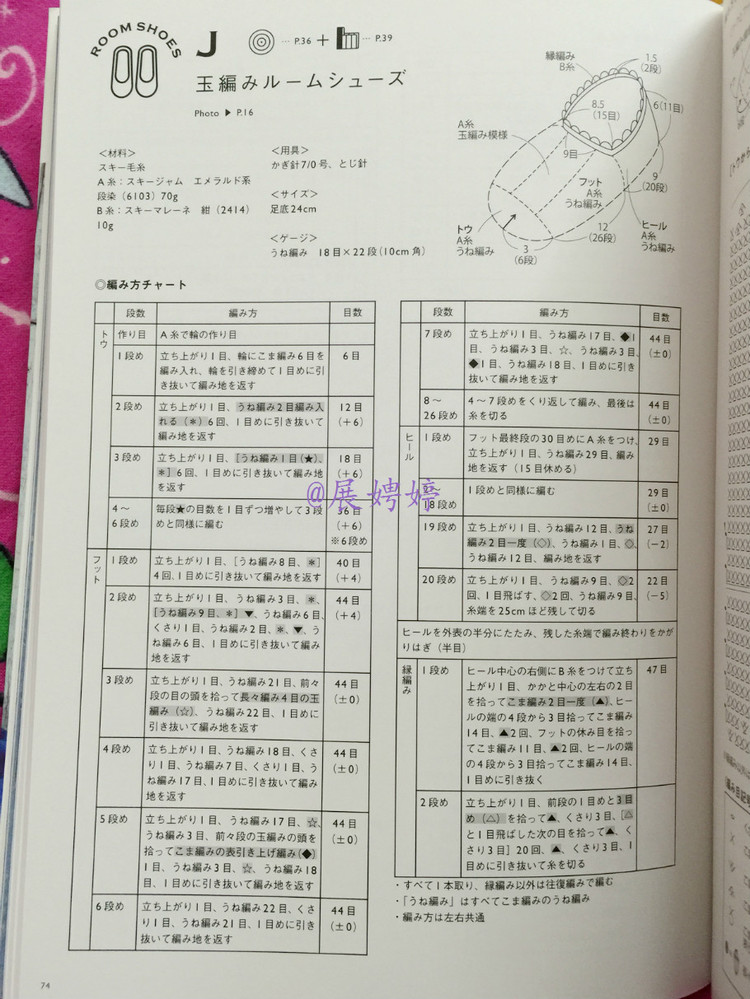 ROOM SHOES
J
… P.36 + … P.39
玉編みルームシューズ
Photo ▶ P.16
<材料>
スキー毛糸
A糸：スキージャム エメラルド系
段染(6103) 70g
B糸：スキーマレーネ 紺(2414)
10g
<用具>
かぎ針7/0号、とじ針
<サイズ>
足底24cm
<ゲージ>
うね編み 18目×22段(10cm角)
縁編み
B糸
1.5
(2段)
8.5
(15目)
6(11目)
A糸
玉編み模様
9目
9
(20段)
フット
A糸
うね編み
12
(26段)
ヒール
A糸
うね編み
トウ
A糸
うね編み
3
(6段)
◎編み方チャート
段数 編み方 目数
トウ
作り目 A糸で輪の作り目
1段め 立ち上がり1目、輪にこま編み6目を 6目
編み入れ、輪を引き締めて1目めに引
き抜いて編み地を返す
2段め 立ち上がり1目、うね編み2目編み入 12目
れる(＊)6回、1目めに引き抜いて (+6)
編み地を返す
3段め 立ち上がり1目、[うね編み1目(★)、 18目
＊]6回、1目めに引き抜いて編み地 (+6)
を返す
4～ 毎段★の目数を1目ずつ増やして3段 36目
6段め めと同様に編む (+6)
※6段め
フット
1段め 立ち上がり1目、[うね編み8目、＊] 40目
4回、1目めに引き抜いて編み地を返す (+4)
2段め 立ち上がり1目、うね編み3目、＊、 44目
[うね編み9目、＊]▼、うね編み6目、 (+4)
くさり1目、うね編み2目、＊、▼、う
ね編み6目、1目めに引き抜いて編み
地を返す
3段め 立ち上がり1目、うね編み21目、前々 44目
段の目の頭を拾って長々編み4目の玉 (±0)
編み(☆)、うね編み22目、1目めに
引き抜いて編み地を返す
4段め 立ち上がり1目、うね編み18目、くさ 44目
り1目、うね編み7目、くさり1目、う (±0)
ね編み17目、1目めに引き抜いて編み
地を返す
5段め 立ち上がり1目、うね編み17目、☆、 44目
うね編み3目、前々段の玉編みの頭を (±0)
拾ってこま編みの表引き上げ編み(◆)
1目、うね編み3目、☆、うね編み18
目、1目めに引き抜いて編み地を返す
6段め 立ち上がり1目、うね編み22目、くさ 44目
り1目、うね編み21目、1目めに引き (±0)
抜いて編み地を返す
段数 編み方 目数
7段め 立ち上がり1目、うね編み17目、◆1 44目
目、うね編み3目、☆、うね編み3目、 (±0)
◆1目、うね編み18目、1目めに引き
抜いて編み地を返す
8～ 4～7段めをくり返して編み、最後は 44目
26段め 糸を切る (±0)
ヒール
1段め フット最終段の30目めにA糸をつけ、 29目
立ち上がり1目、うね編み29目、編み
地を返す(15目休める)
18段め 1段めと同様に編む 29目
(±0)
19段め 立ち上がり1目、うね編み12目、うね 27目
編み2目一度(◇)、うね編み1目、◇、 (−2)
うね編み12目、編み地を返す
20段め 立ち上がり1目、うね編み9目、◇2 22目
回、1目飛ばす、◇2回、うね編み9目、 (−5)
糸端を25cmほど残して切る
ヒールを外表の半分にたたみ、残した糸端で編み終わりをかが
りはぎ(半目)
縁編み
1段め ヒール中心の右側にB糸をつけて立ち 47目
上がり1目、かかと中心の左右の2目
を拾ってこま編み2目一度(▲)、ヒー
ルの端の4段から3目拾ってこま編み
14目、▲2回、フットの休み目を拾っ
てこま編み11目、▲2回、ヒールの端
の4段から3目拾ってこま編み14目、
1目めに引き抜く
2段め 立ち上がり1目、前段の1目めと3目
め(△)を拾って▲、くさり3目、[△
と1目飛ばした次の目を拾って▲、く
さり3目]20回、▲、くさり3目、1
目めに引き抜いて糸を切る
・すべて1本取り、縁編み以外は往復編みで編む
・「うね編み」はすべてこま編みのうね編み
・編み方は左右共通
74
@展娉婷